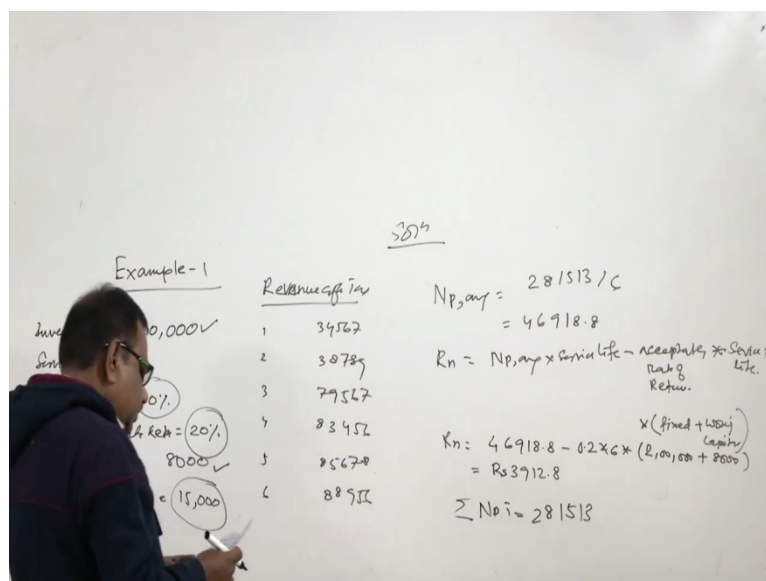 Soln
Example-1
Inve 00,000✓
0%.
Rate = 20%.
8000 ✓
= 15,000
Revenue after Tax
1 34567
2 38789
3 79567
4 83456
5 85678
6 88956
Np,avg = 281513/6
= 46918.8
Rn = Np,avg x Service life - acceptable x Service life.
Rate of
Return.
x (fixed + working
capital)
Rn: 46918.8 - 0.2*6* (2,00,000 + 8000)
= Rs3912.8
Σ Npi = 281513